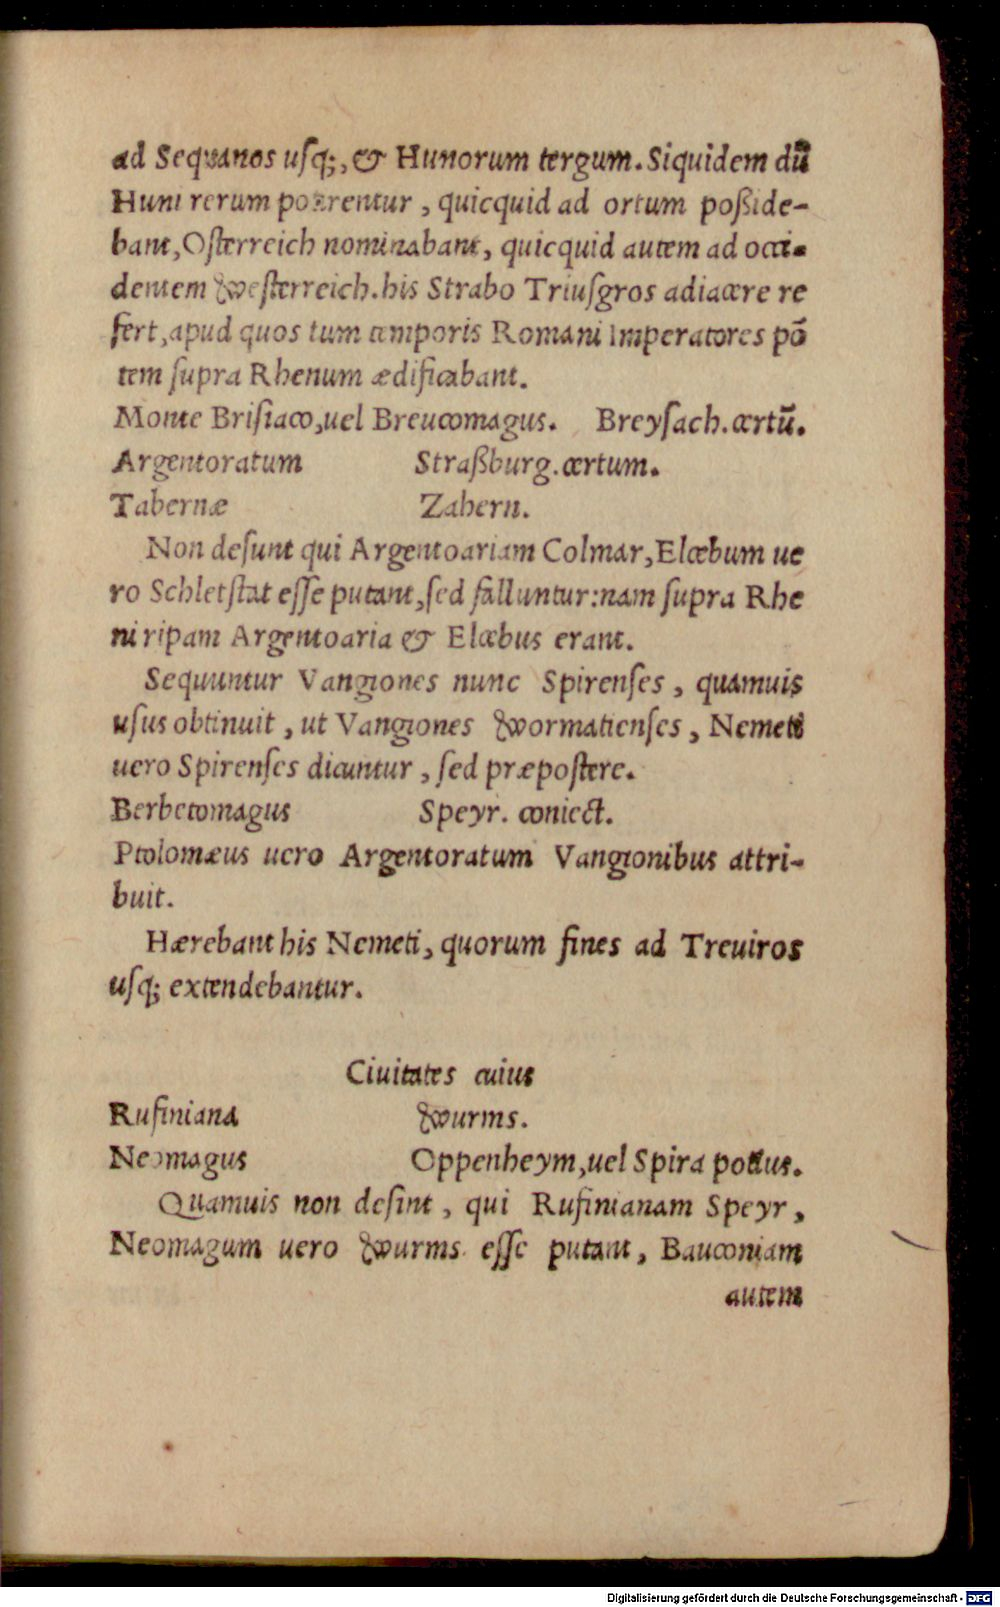 ad Sequanos uſq;, & Hunorum tergum. Siquidem dū
Huni rerum potirentur, quicquid ad ortum poßide-
bant, Oſterreich nominabant, quicquid autem ad occi-
dentem Weſterreich. his Strabo Triuſgros adiacere re
fert, apud quos tum temporis Romani Imperatores pō
tem ſupra Rhenum ædificabant.
Monte Briſiaco, uel Breucomagus. Breyſach. certū.
Argentoratum Straßburg. certum.
Tabernæ Zabern.
Non deſunt qui Argentoariam Colmar, Elcebum ue
ro Schletſtat eſſe putant, ſed falluntur: nam ſupra Rhe
ni ripam Argentoaria & Elcebus erant.
Sequuntur Vangiones nunc Spirenſes, quamuis
uſus obtinuit, ut Vangiones Wormatienſes, Nemeti
uero Spirenſes dicuntur, ſed præpoſtere.
Berbetomagus Speyr. coniect.
Ptolomæus uero Argentoratum Vangionibus attri-
buit.
Hærebant his Nemeti, quorum fines ad Treuiros
uſq; extendebantur.
Ciuitates cuius
Rufiniana Wurms.
Neomagus Oppenheym, uel Spira potius.
Quamuis non deſint, qui Rufinianam Speyr,
Neomagum uero Wurms eſſe putant, Bauconiam
autem
Digitalisierung gefördert durch die Deutsche Forschungsgemeinschaft - DFG